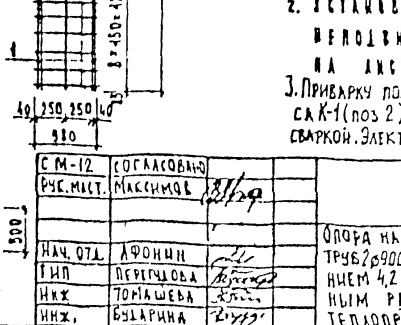 1
8×150=1
15
40 250 250 40
980
2. УСТАНОВ
НЕПОДВИ
НА
3. ПРИВАРКУ ПО
СА К-1 (ПОЗ 2)
СВАРКОЙ. ЭЛЕКТ
СМ-12 СОГЛАСОВАНО
РУК. МАСТ. МАКСИМОВ
500
НАЧ. ОТД. АФОНИН
ГИП ПЕРЕГУДОВА
ИНЖ ТОМАШЕВА
ИНЖ. БУДАРИНА
ОПОРА НА
ТРУБ 2φ900
НИЕМ 4,2
НЫМ
ТЕПЛОПР